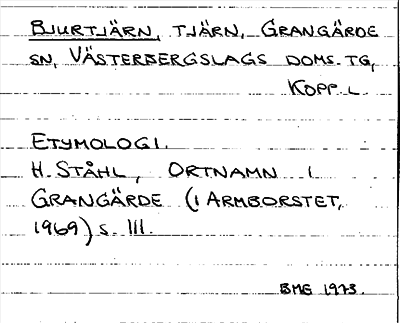 BJURTJÄRN, TJÄRN, GRANGÄRDE
SN, VÄSTERBERGSLAGS DOMS. TG,
KOPP. L.
ETYMOLOGI.
H. STÅHL, ORTNAMN I
GRANGÄRDE (I ARMBORSTET,
1969) S. 111.
BMG 1973.